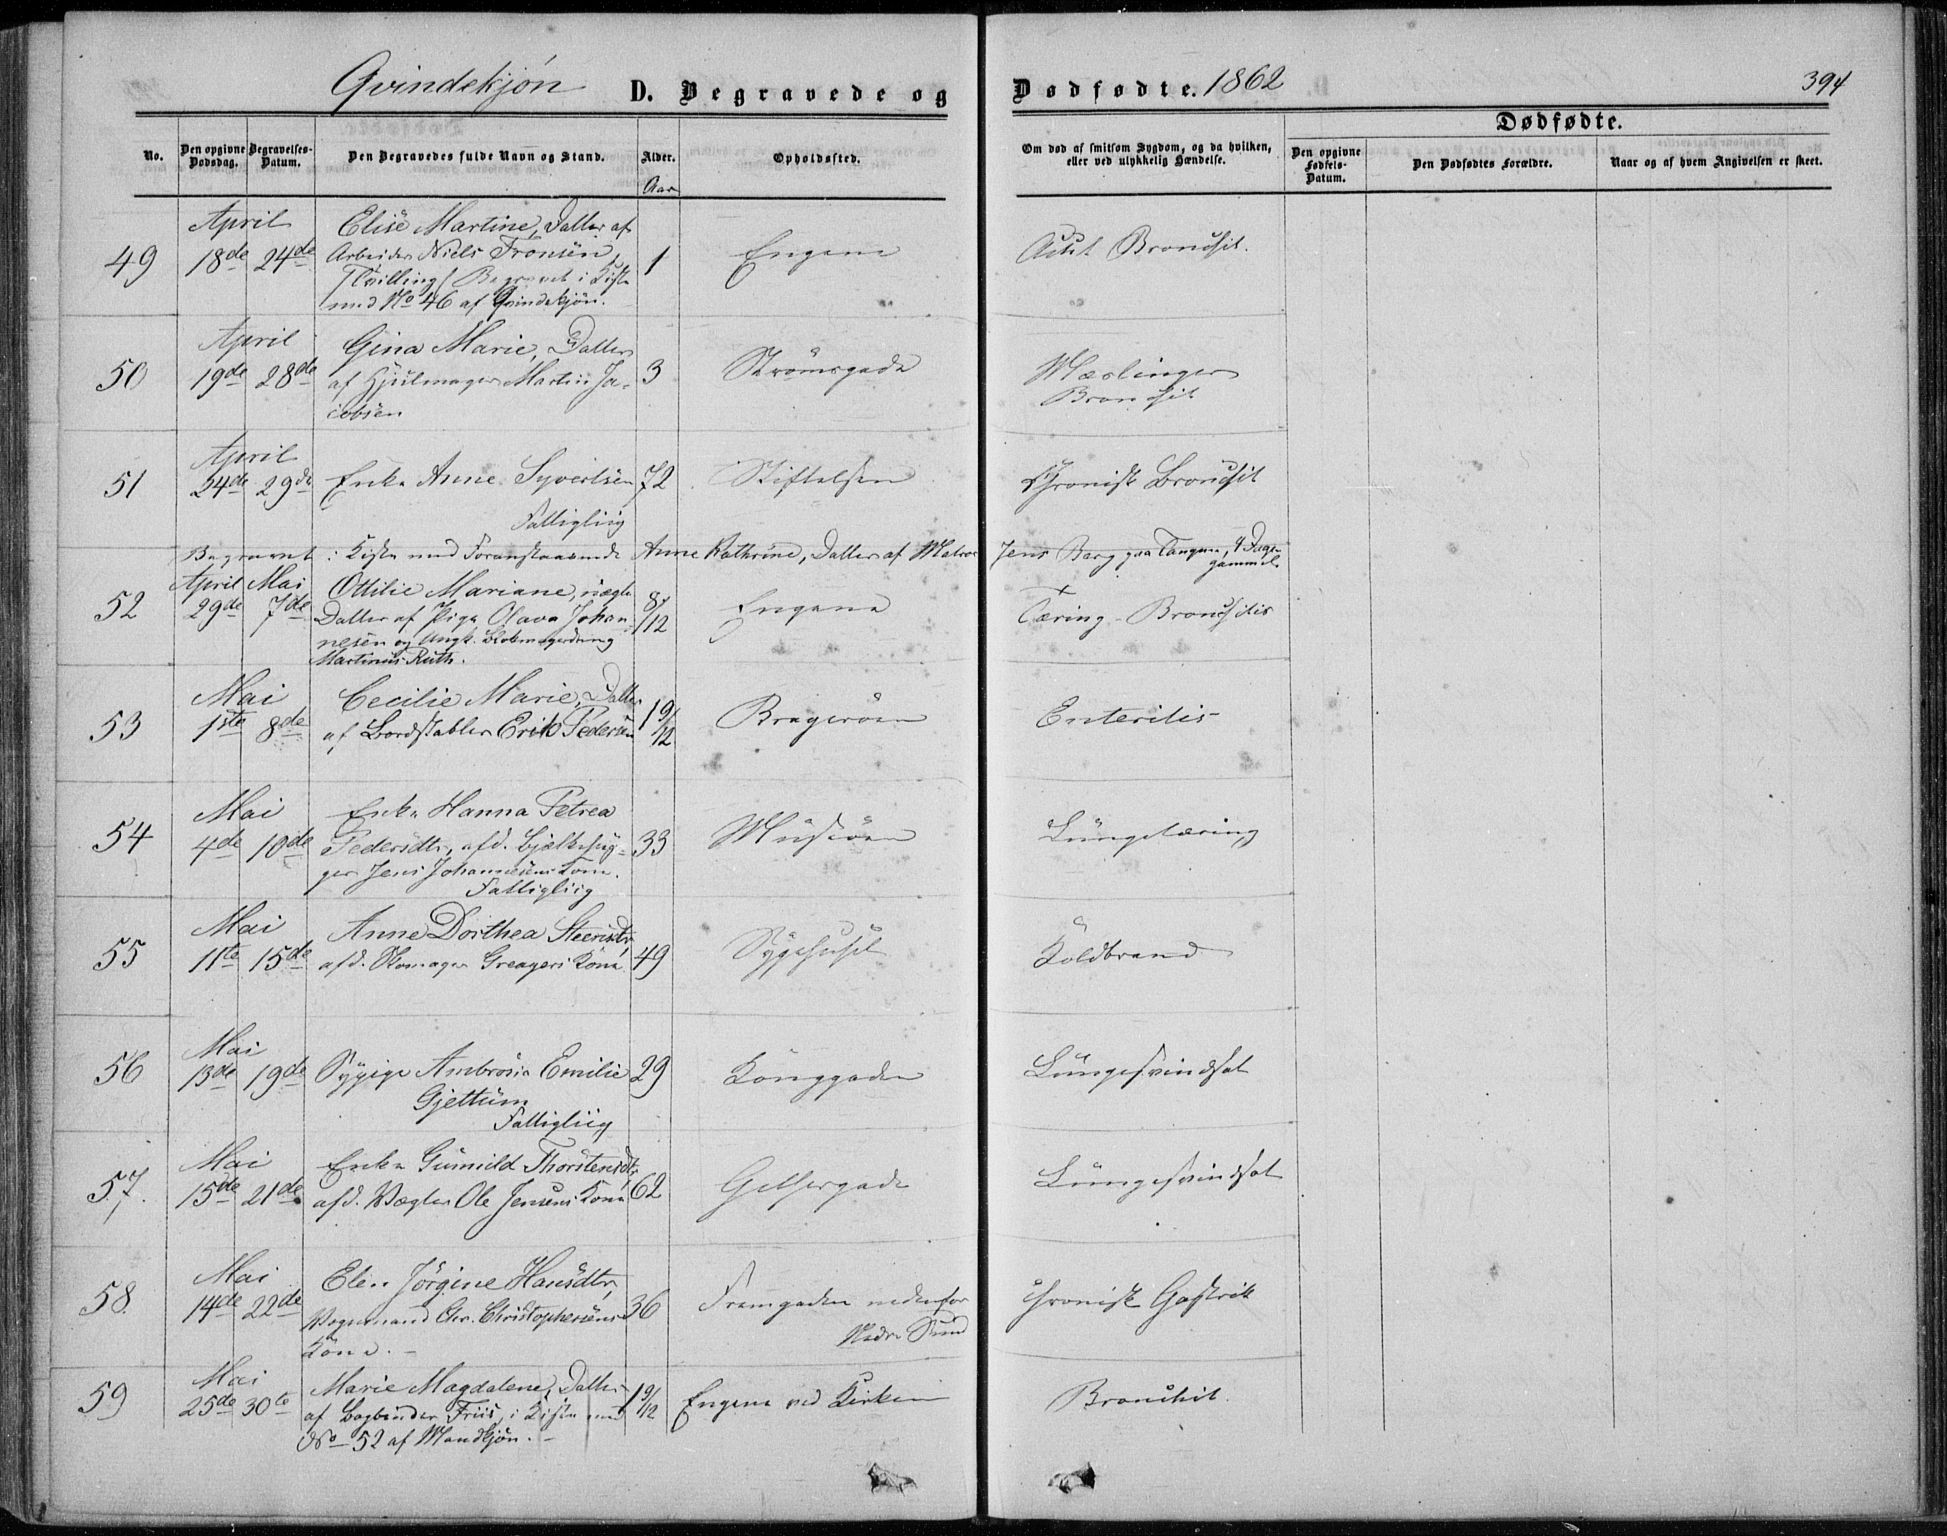 Qvindekjön D. Begravede og Dødfødte. 1862 394
Dødfødte.
No. Den opgivne Dødsdag. Begravelses-Datum. Den Begravedes fulde Navn og Stand. Alder. Opholdssted. Om død af smitsom Sygdom, og da hvilken, eller ved ulykkelig Hændelse. Den opgivne Fødsels-Datum. Den Dødfødtes Forældre. Naar og af hvem Angivelsen er skeet.
Aar
April Elise Martine, Datter af
49 18de 24de Arbeider Niels Fronsen, 1 Engene Acut Bronchit.
Tvilling (Begravet i Kiste
med No 46 af Qvindekjön.
April Gina Marie, Datter
50 19de 28de af Hjulmager Martin Ja- 3 Strömsgade Mæslinger
cobsen Bronchit
April
51 24de 29de Enke Anne Syvertsen 72 Stiftelsen Chronisk Bronchit
Fattigliig
Begravet i Kiste med Foranstaaende Anne Kathrine, Datter af Matros Jens Berg paa Tangen, 4 Dage
gammel.
April Mai Ottilie Mariane, uægte
52 29de 7de Datter af Pige Olava Johan- 8/12 Engene Tæring - Bronchitis
nesen og Ungk. Blokmagerdreng
Martinus Ruth.
Mai Cecilie Marie, Datter
53 1ste 8de af Bordstabler Erik Pedersen 1 9/12 Bragerøen Enteritis
Mai Enke Hanna Petrea
54 4de 10de Pedersdtr, afd. Bjelkehug- 33 Musöen Lungetæring
ger Jens Johannesens Kone.
Fattigliig
Mai Anne Dorthea
55 11te 15de afd. Skomager Gregers Kone 49 Sygehuset Koldbrand
Mai
56 13de 19de Sypige Ambrosia Emilie 29 Konggaden Lungesvindsot
Gjettum
Fattigliig
Mai Enke Gunnild Thorstensdtr,
57. 15de 21de afd. Vægter Ole Jensens Kone 62 Gethsegade Lungesvindsot
Mai Elen Jörgine Hansdtr,
58. 14de 22de Vognmand Chr. Christophersens 36 Fremgaden nedenfor Chronisk Gastrit
Kone. - Nedre Sund
Mai Marie Magdalene, Datter
59 25de 30te af Bogbinder Friis, i Kiste med 1 9/12 Engene ved Kirken Bronchit.
No 52 af Mandkjön. -